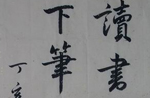 讀書
下筆
丁亥